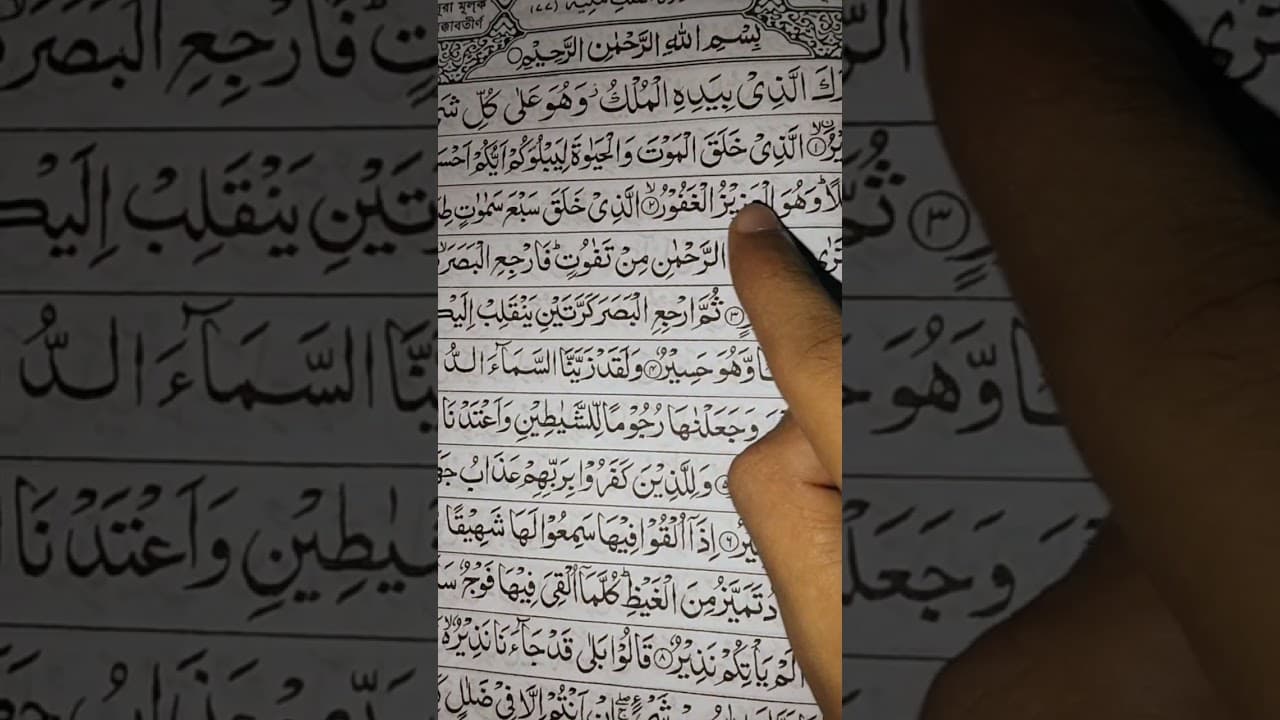 মূলক
بِسْمِ اللهِ الرَّحْمٰنِ الرَّحِيْمِ
الَّذِيْ بِيَدِهِ الْمُلْكُ ۚ وَهُوَ عَلٰى كُلِّ
۱ الَّذِيْ خَلَقَ الْمَوْتَ وَالْحَيٰوةَ لِيَبْلُوَكُمْ اَيُّكُمْ
وَهُوَ الْعَزِيْزُ الْغَفُوْرُ ۲ الَّذِيْ خَلَقَ سَبْعَ سَمٰوٰتٍ
الرَّحْمٰنِ مِنْ تَفٰوُتٍ ؕ فَارْجِعِ الْبَصَرَ
۳ ثُمَّ ارْجِعِ الْبَصَرَ كَرَّتَيْنِ يَنْقَلِبْ
وَّهُوَ حَسِيْرٌ ۴ وَلَقَدْ زَيَّنَّا السَّمَآءَ الدُّ
وَجَعَلْنٰهَا رُجُوْمًا لِّلشَّيٰطِيْنِ وَاَعْتَدْنَا
وَلِلَّذِيْنَ كَفَرُوْا بِرَبِّهِمْ عَذَابُ
۶ اِذَآ اُلْقُوْا فِيْهَا سَمِعُوْا لَهَا شَهِيْقًا
تَمَيَّزُ مِنَ الْغَيْظِ ؕ كُلَّمَآ اُلْقِيَ فِيْهَا فَوْجٌ
اَلَمْ يَاْتِكُمْ نَذِيْرٌ ۸ قَالُوْا بَلٰى قَدْ جَآءَنَا نَذِيْرٌ
اِنْ اَنْتُمْ اِلَّا فِيْ ضَلٰلٍ